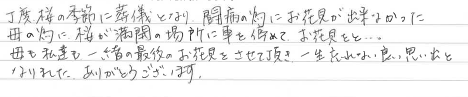 丁度桜の季節に葬儀となり、闘病の為にお花見が出来なかった
母の為に、桜が満開の場所に車を停めて、お花見をと…。
母も私達も一緒の最後のお花見をさせて頂き、一生忘れない良い思い出と
なりました。ありがとうございます。